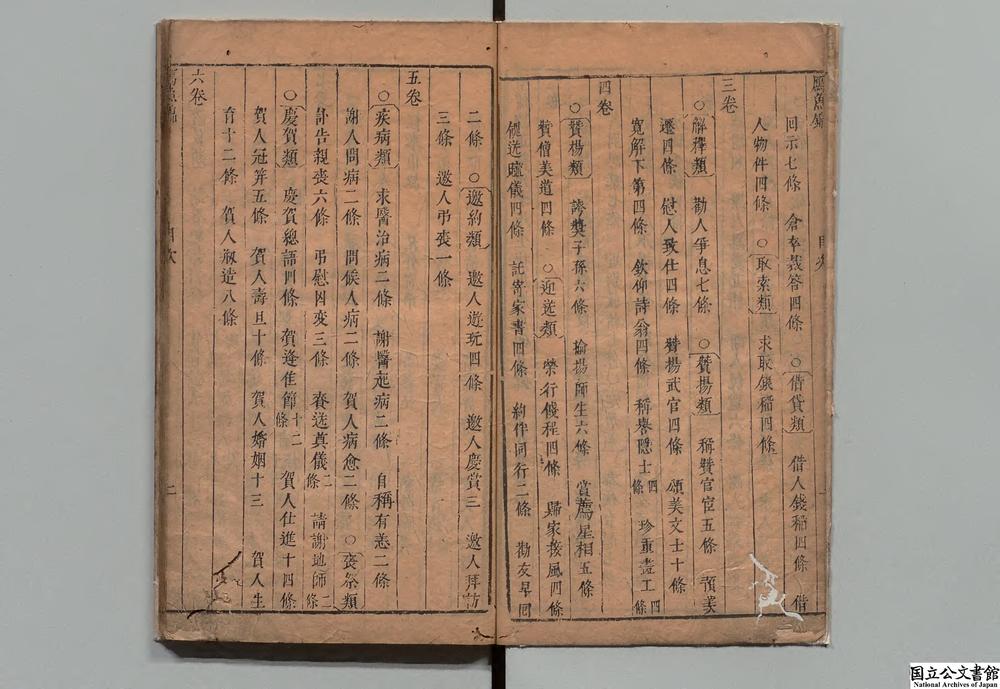 回示七條 倉卒裁答四條 ○借貸類 借人錢稲四條 借
人物件四條 ○取索類 求取銀稲四條
三卷
○解釋類 勸人爭息七條 ○贊揚類 稱贊官宦五條 頌美
遷四條 慰人致仕四條 贊揚武官四條 頌美文士十條
寬解下第四條 欽仰詩翁四條 稱譽隱士四條 珍重畫工四條
四卷
○贊揚類 誇奬子孫六條 揄揚師生六條 賞薦星相五條
贊僧美道四條 ○迎送類 榮行餞程四條 歸家接風四條
餽送贐儀四條 託寄家書四條 約伴同行二條 勸友早回
二條 ○邀約類 邀人遊玩四條 邀人慶賞三 邀人拜訪
三條 邀人弔喪一條
五卷
○疾病類 求醫治病二條 謝醫起病二條 自稱有恙二條
謝人問病二條 問候人病二條 賀人病愈二條 ○喪祭類
訃告親喪六條 弔慰凶変三條 奔送奠儀二條 請謝地師二條
○慶賀類 慶賀總語四條 賀逢佳節十二條 賀人仕進十四條
賀人冠笄五條 賀人壽旦十條 賀人婚姻十三 賀人生
育十二條 賀人瓶造八條
六卷
目次
二
国立公文書館
National Archives of Japan